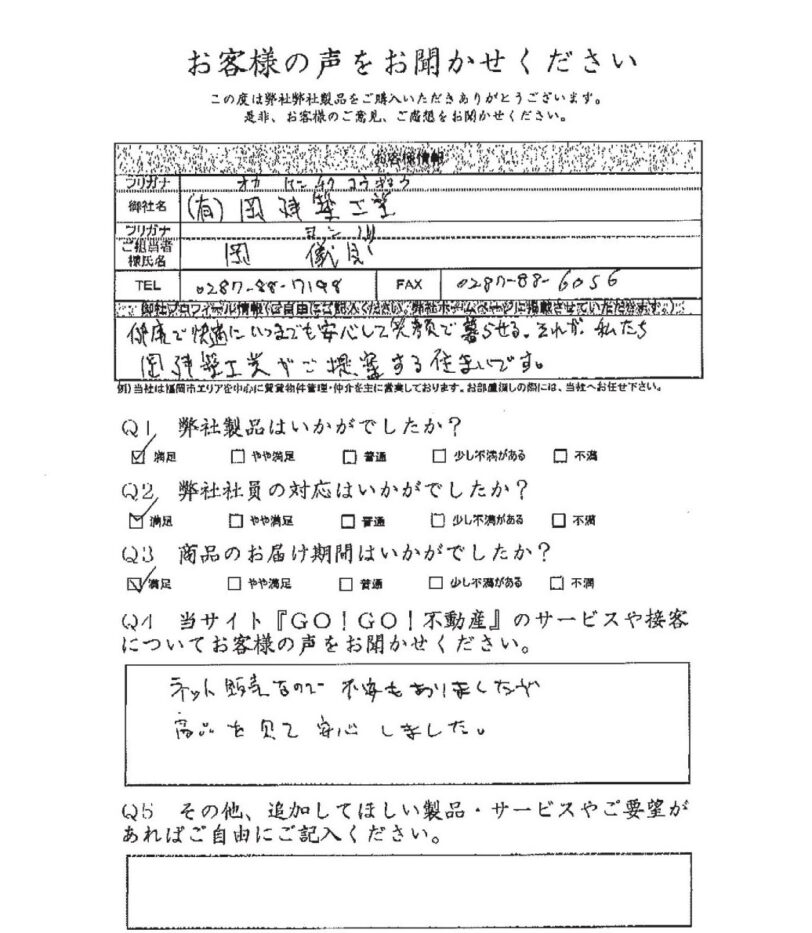 お客様の声をお聞かせください
この度は弊社弊社製品をご購入いただきありがとうございます。
是非、お客様のご意見、ご感想をお聞かせください。
お客様情報
フリガナ オカ ケンチクコウギョウ
御社名 (有)岡建築工業
フリガナ
ご担当者様氏名 岡 儀良
TEL 0287-88-7198 FAX 0287-88-6056
御社プロフィール情報(ご自由にご記入ください。弊社ホームページに掲載させていただきます。)
健康で快適にいつまでも安心して笑顔で暮らせる。それが、私たち
岡建築工業がご提案する住まいです。
例)当社は福岡市エリアを中心に賃貸物件管理・仲介を主に営業しております。お部屋探しの際には、当社へお任せ下さい。
Q1 弊社製品はいかがでしたか?
満足 やや満足 普通 少し不満がある 不満
Q2 弊社社員の対応はいかがでしたか?
満足 やや満足 普通 少し不満がある 不満
Q3 商品のお届け期間はいかがでしたか?
満足 やや満足 普通 少し不満がある 不満
Q4 当サイト『GO!GO!不動産』のサービスや接客
についてお客様の声をお聞かせください。
ネット販売なので不安もありましたが
商品を見て安心しました。
Q5 その他、追加してほしい製品・サービスやご要望が
あればご自由にご記入ください。